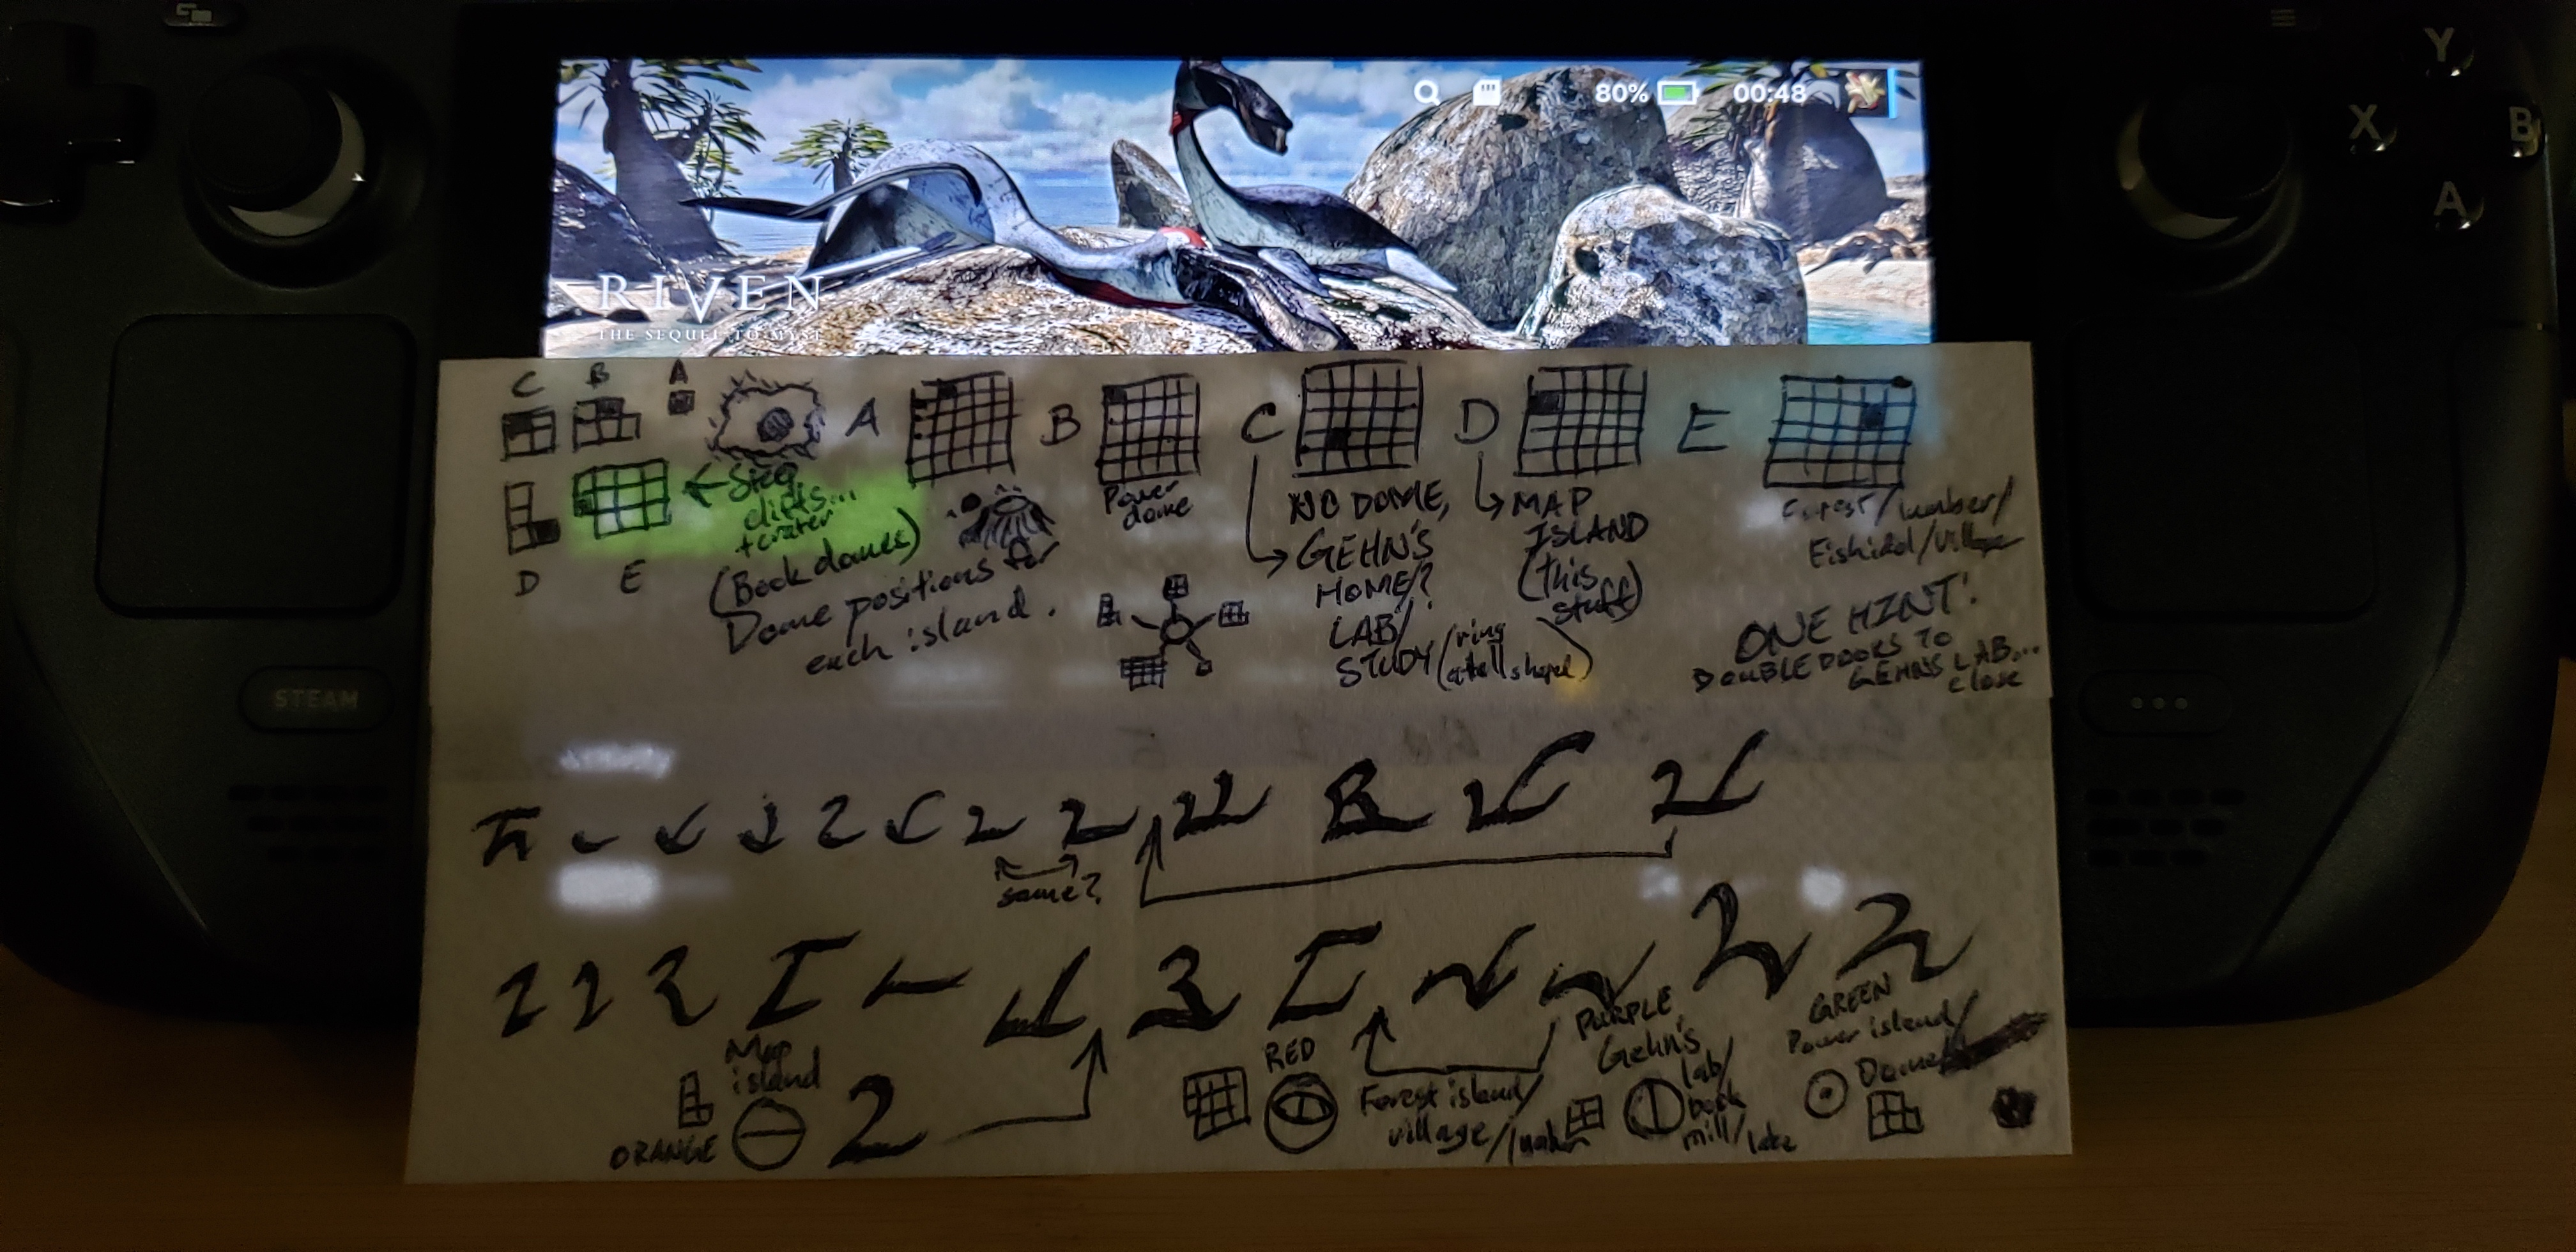 Y
X
B
A
80% 00:48
RIVEN
THE SEQUEL TO MYST
STEAM
C B A
A B C D E
D E
Steep
cliffs...
+ crater
(Book domes)
Dome positions for
each island.
Power
dome
NO DOME,
GEHN'S
HOME/?
LAB/
STUDY (ring
atoll shape)
MAP
ISLAND
(this
stuff)
Forest/lumber/
village
ONE HINT!
DOUBLE DOORS TO
GEHN'S LAB...
close
same?
Map
island
ORANGE
RED
Forest island/
village/
PURPLE
Gehn's
lab/
book
mill/lake
GREEN
Power island/
Dome